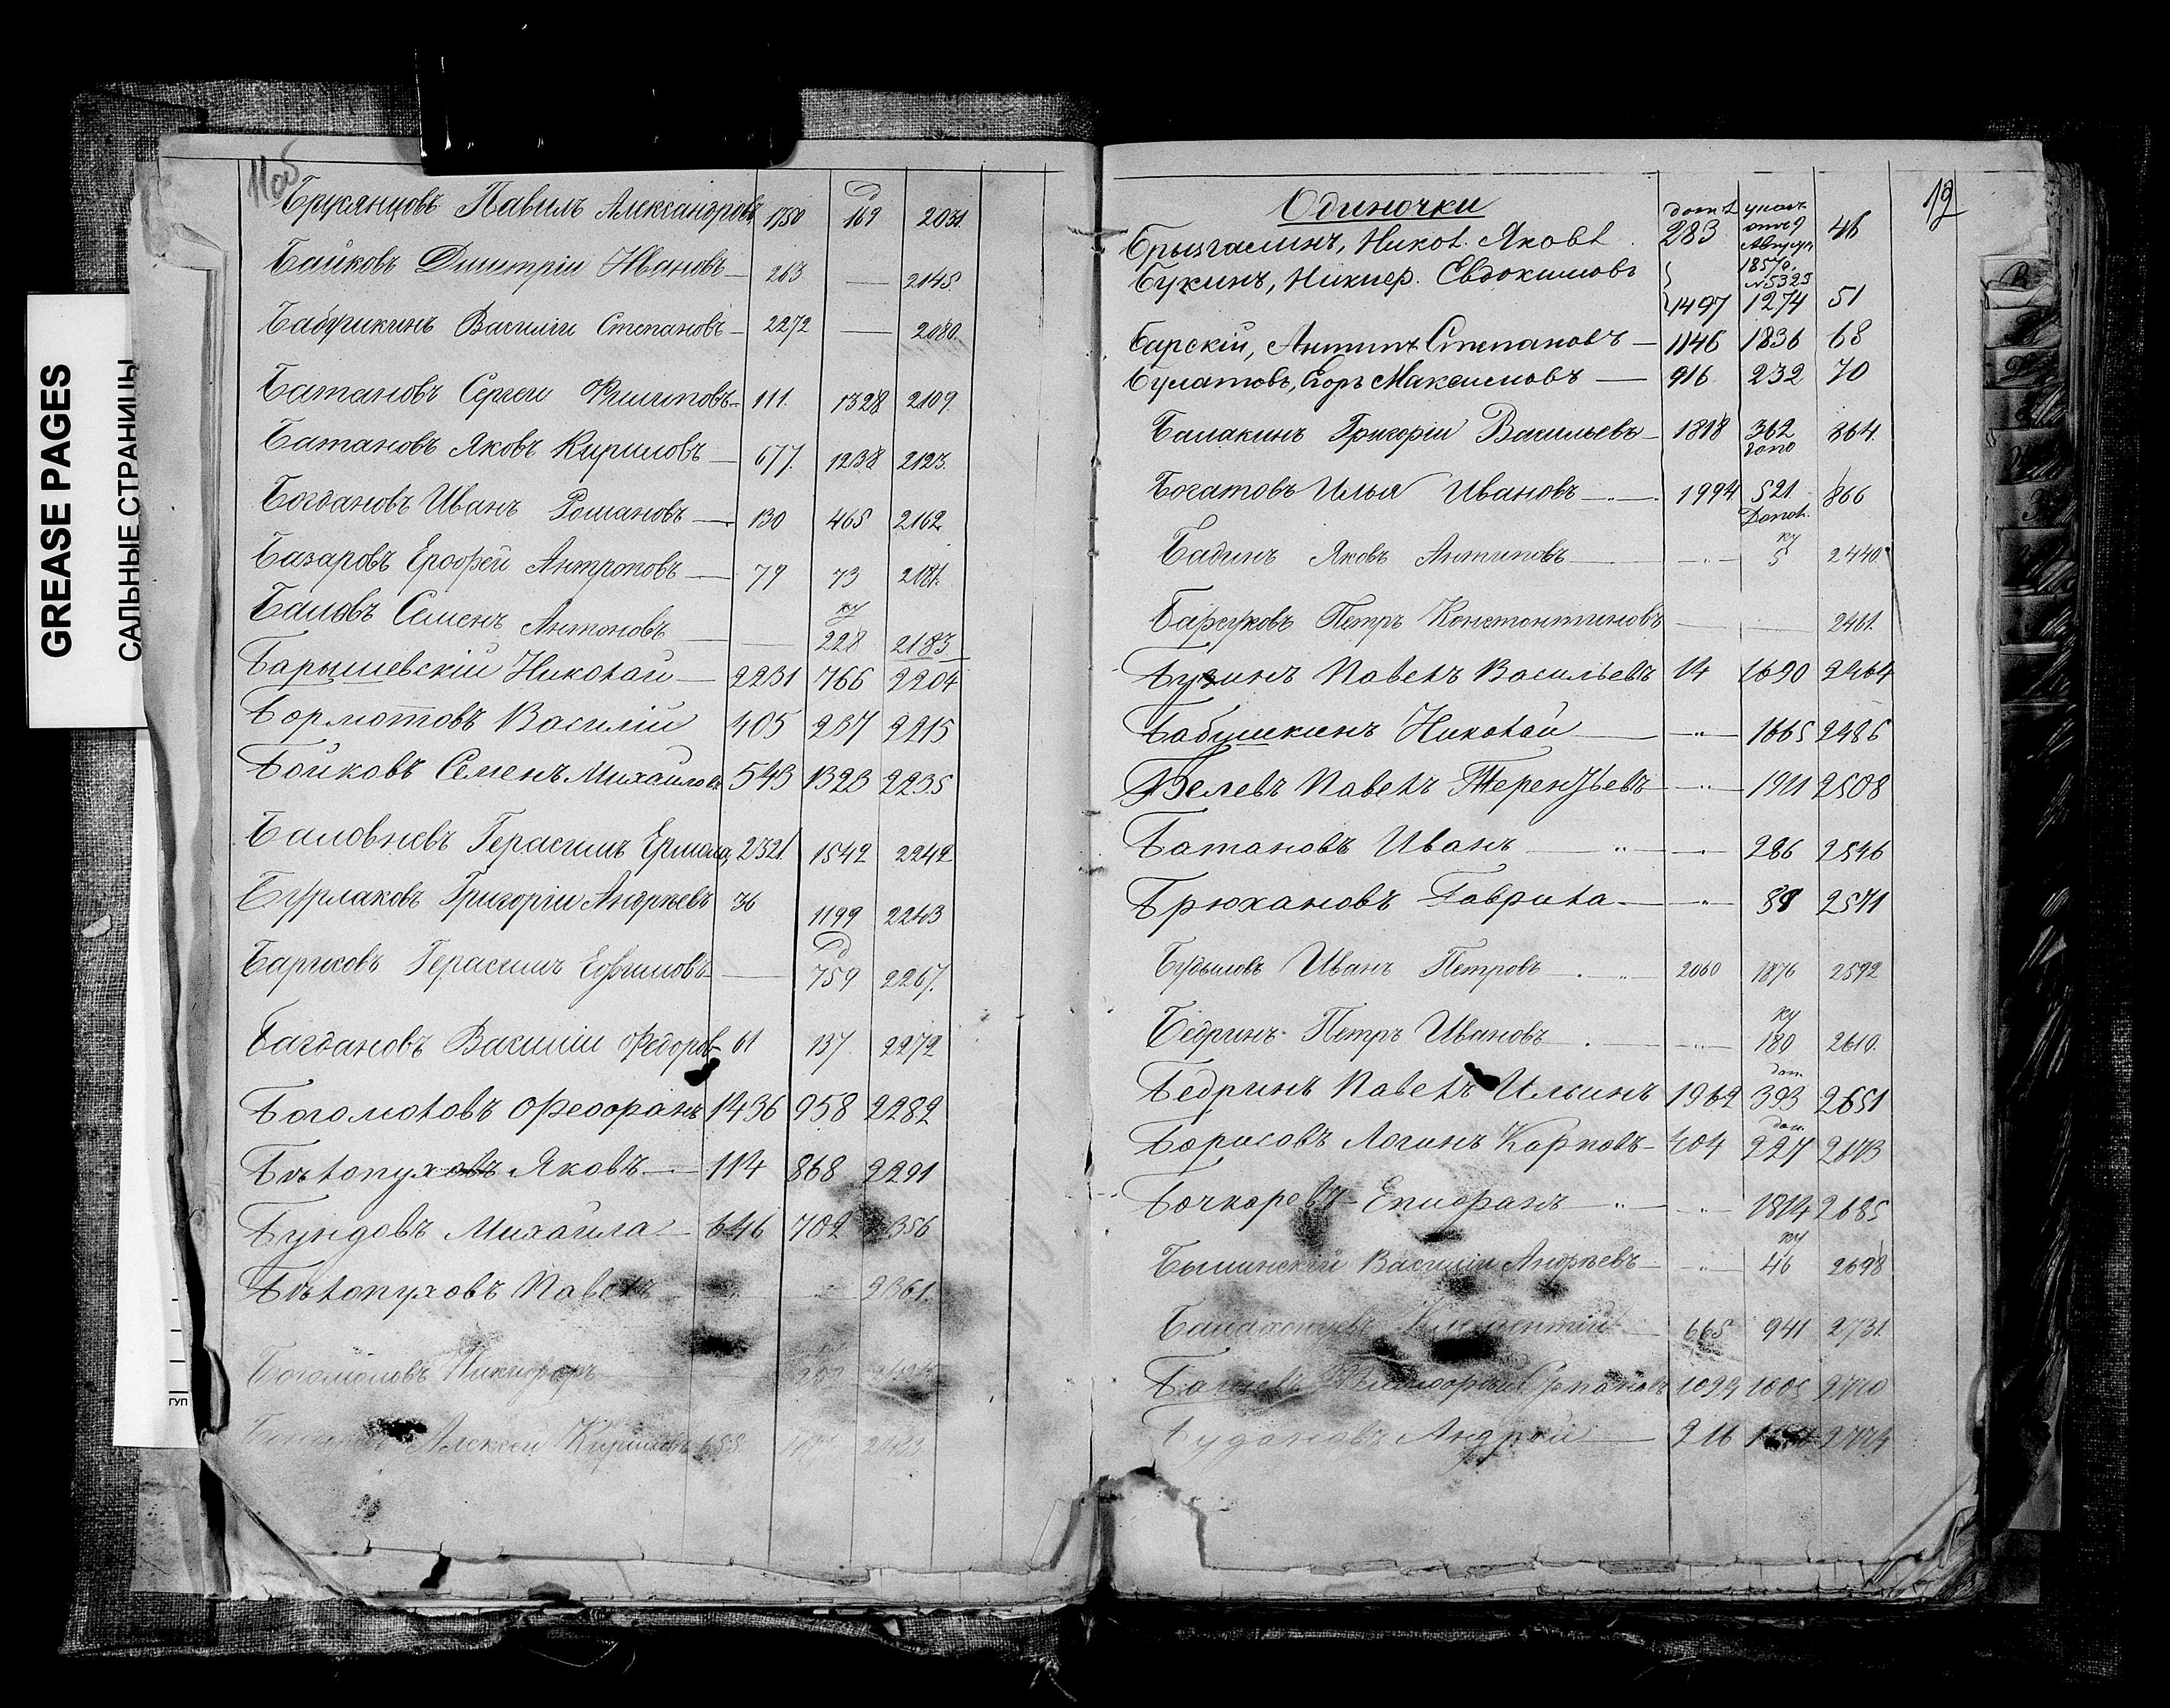 GREASE PAGES
САЛЬНЫЕ СТРАНИЦЫ
11об
Брусянцовъ Павилъ Александровъ 1750 169 2031.
Байковъ Дмитрiй Ивановъ 263 — 2145.
Бабушкинъ Василiй Степановъ 2272 — 2080.
Батановъ Сергей Филиповъ 111. 1328 2109.
Батановъ Яковъ Кириловъ 677. 1238 2123.
Богдановъ Иванъ Романовъ 130 465 2162
Базаровъ Ерофей Антроповъ 79 73 2181.
Баловъ Семенъ Антоновъ — ку 228 2183
Барышевскiй Николай 2231 766 2204
Бормотовъ Василiй 405 237 2215
Бойковъ Семенъ Михайловъ 543 1323 2235
Баловневъ Герасимъ Ермола 2321. 1542 2242
Бурлаковъ Григорiй Андреевъ 36 1199 2243
Барисовъ Герасимъ Ефимовъ — 759 2267.
Багдановъ Василiй Федоров 61 137 2272
Богомоловъ Феофанъ 1436 958 2282
Бѣлопуховъ Яковъ 114 868 2291
Бундовъ Михайла 646 702 2356
Бѣлопуховъ Павелъ 2361.
Богомоловъ Никифоръ
Алексей Кириловъ 655.
12
Одиночки
Брызгалинъ, Никол. Яковл. 283 46
Букинъ, Никифер. Евдокимовъ
1857г.
№5325
1497 1274 51
Барскiй, Антипъ Степановъ — 1146 1836 68
Булатовъ, Егоръ Максимовъ — 916 232 70
Балакинъ Григорiй Васильевъ 1818 362 864.
Богатовъ Илья Ивановъ 1994 521 866
Бадинъ Яковъ Антиповъ ку 5 2440.
Барсуковъ Петръ Констонтиновъ 2461.
Бузинъ Павелъ Васильевъ 14 1690 2464
Бабушкинъ Николай 1665 2486
Белевъ Павелъ Терентьевъ 1911 2508
Батановъ Иванъ 286 2546
Брюхановъ Гаврила 88 2571
Будыловъ Иванъ Петровъ 2060 1876 2592
Бедринъ Петръ Ивановъ ку 180 2610.
Бедринъ Павелъ Ильинъ 1962 393 2651
Борисовъ Логинъ Карповъ 404 227 2673
Бочкоревъ Епифанъ 1814 2685
Бышинскiй Василiй Андреевъ ку 46 2698
665 941 2731.
Будановъ Андрей 216